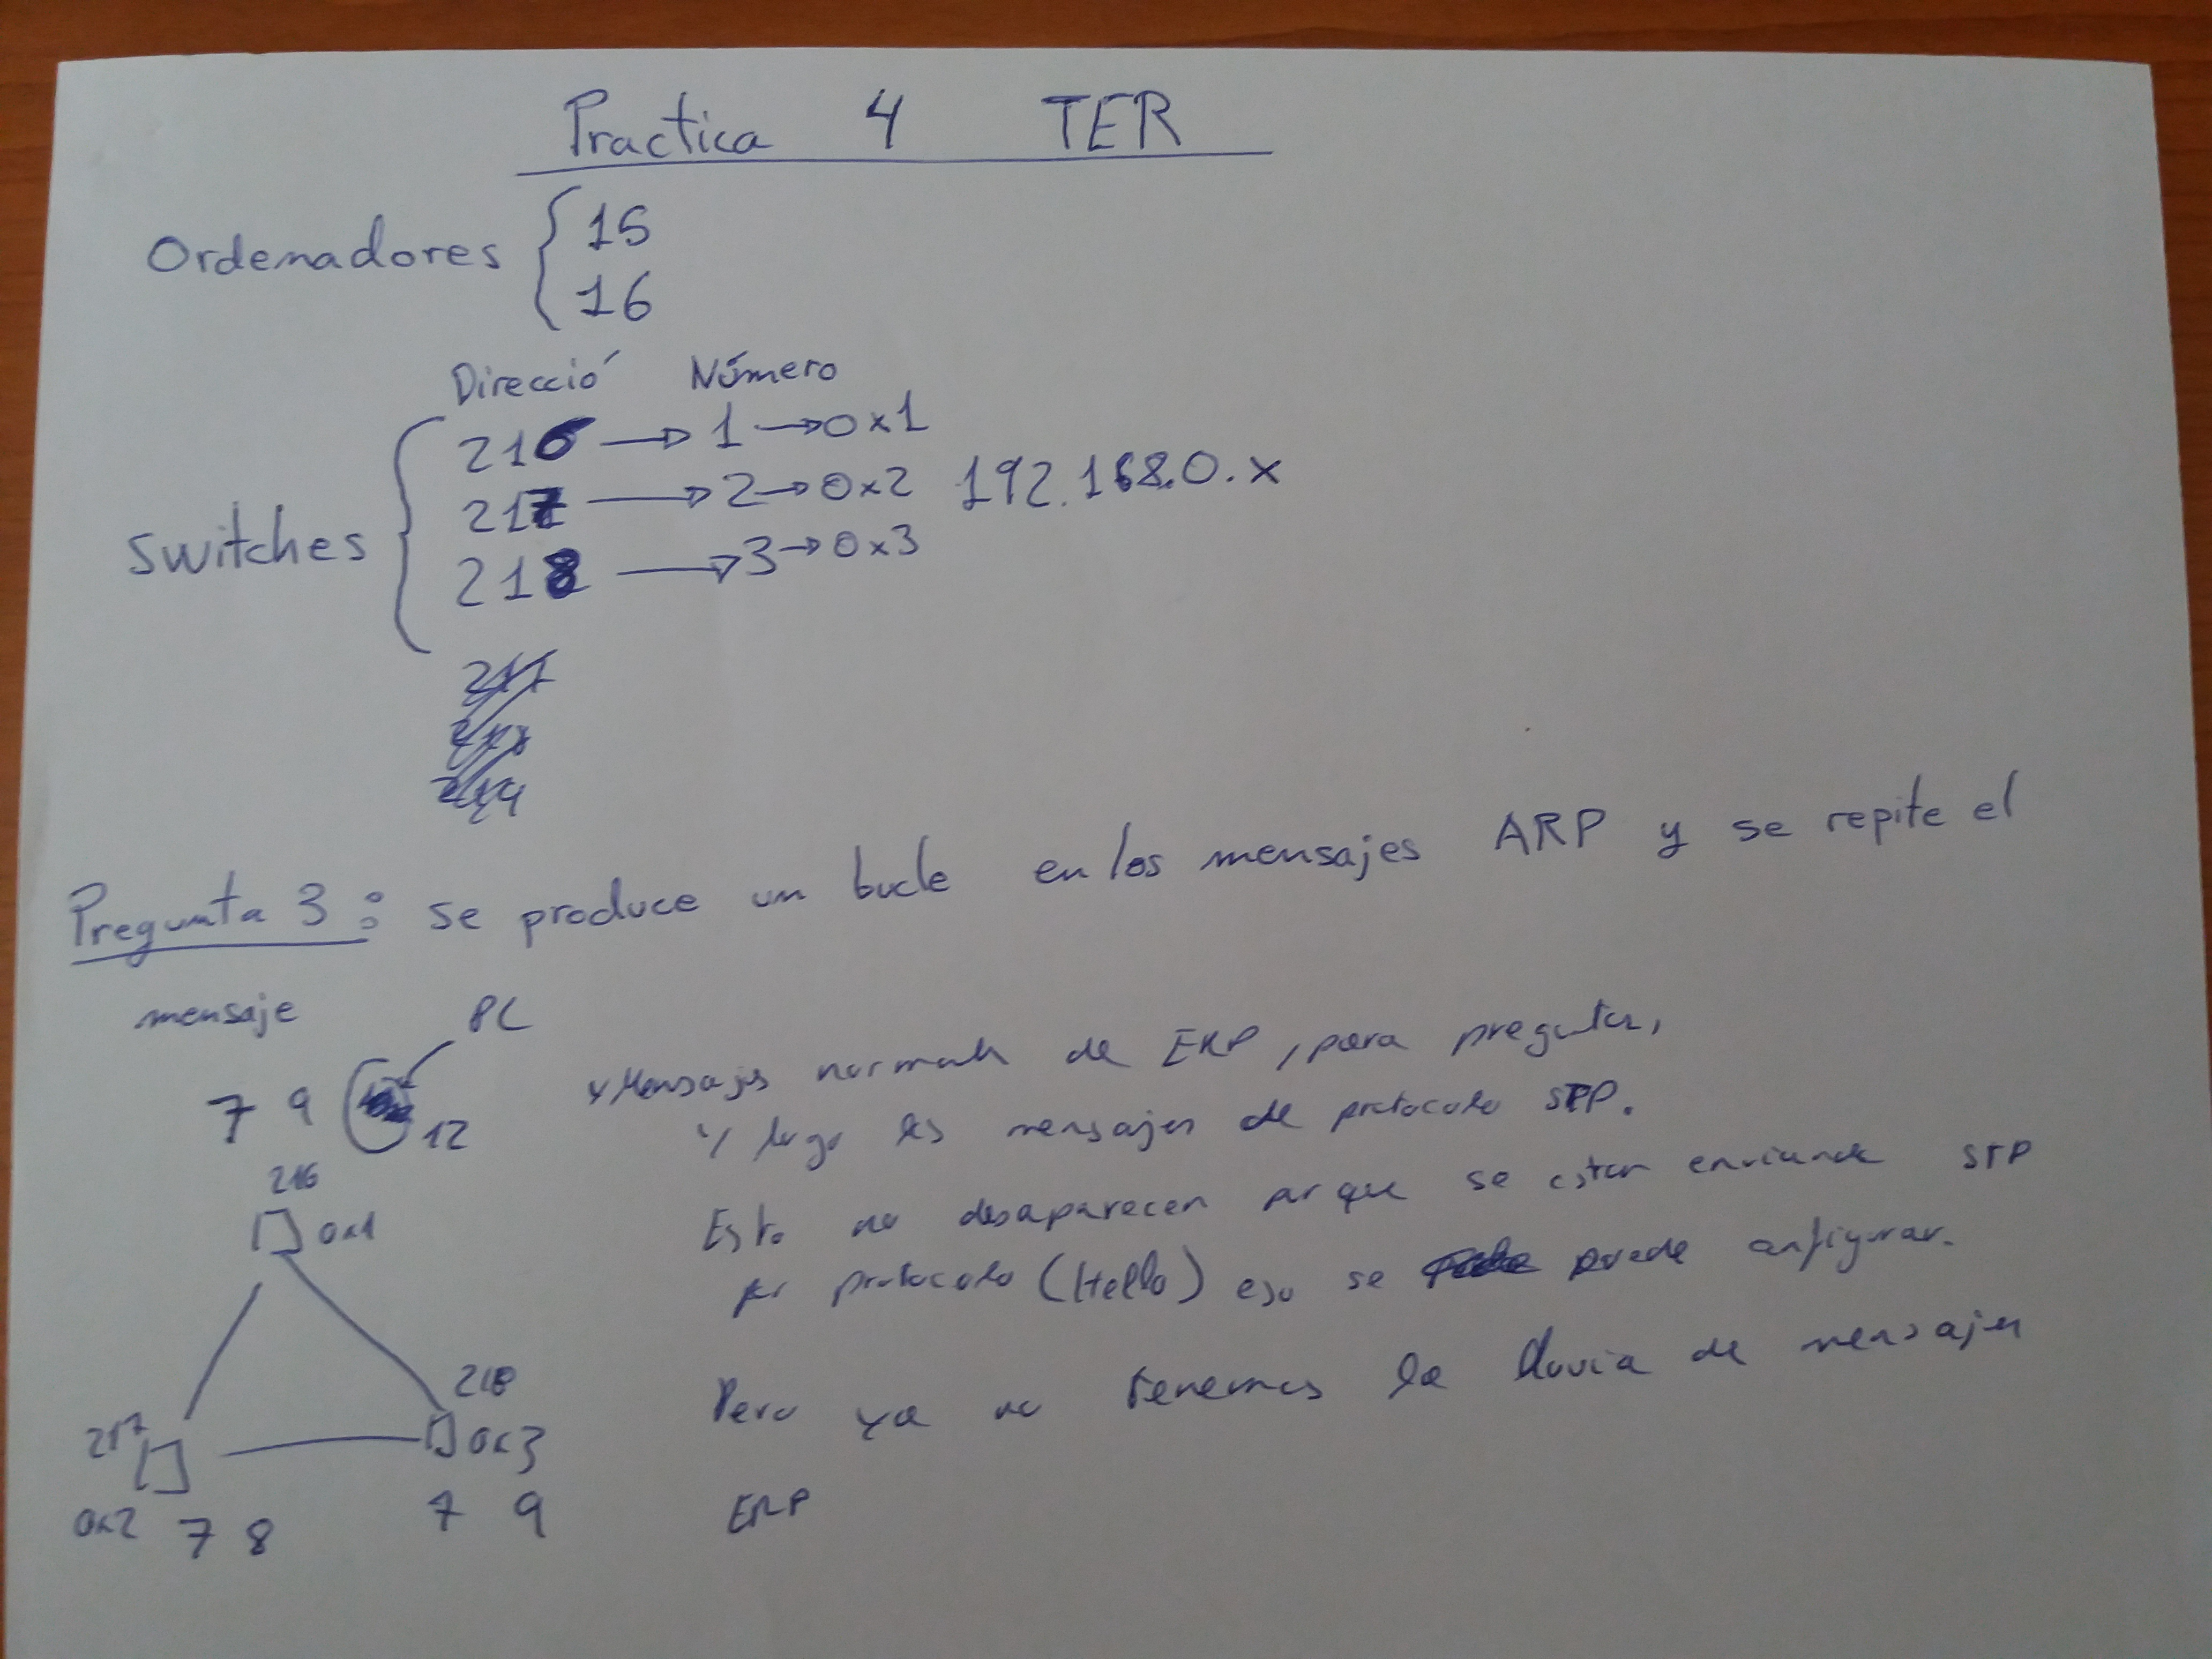 Practica 4 TER
Ordenadores { 15
16
Direcció Número
Switches { 216 → 1 → 0x1
217 → 2 → 0x2 192.168.0.x
218 → 3 → 0x3
Pregunta 3: se produce un bucle en los mensajes ARP y se repite el
mensaje
PC
7 9 12
216
0x1
217
0x2
7 8
218
0x3
7 9
Mensajes de ERP, para
y luego los mensajes de protocolo STP.
Esto no desaparecen porque se estan enviando STP
por protocolo (Hello) eso se puede configurar.
Pero ya no tenemos la lluvia de mensajes
ERP